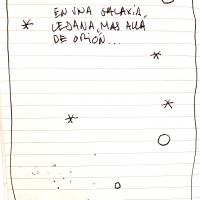 EN UNA GALAXIA,
LEJANA, MAS ALLÁ
DE ORIÓN...